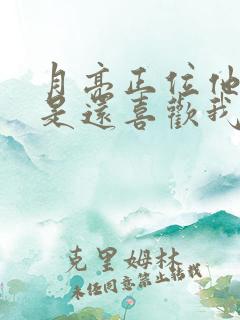 月亮正位他
是還喜歡我
克里姆林
未经同意禁止转载